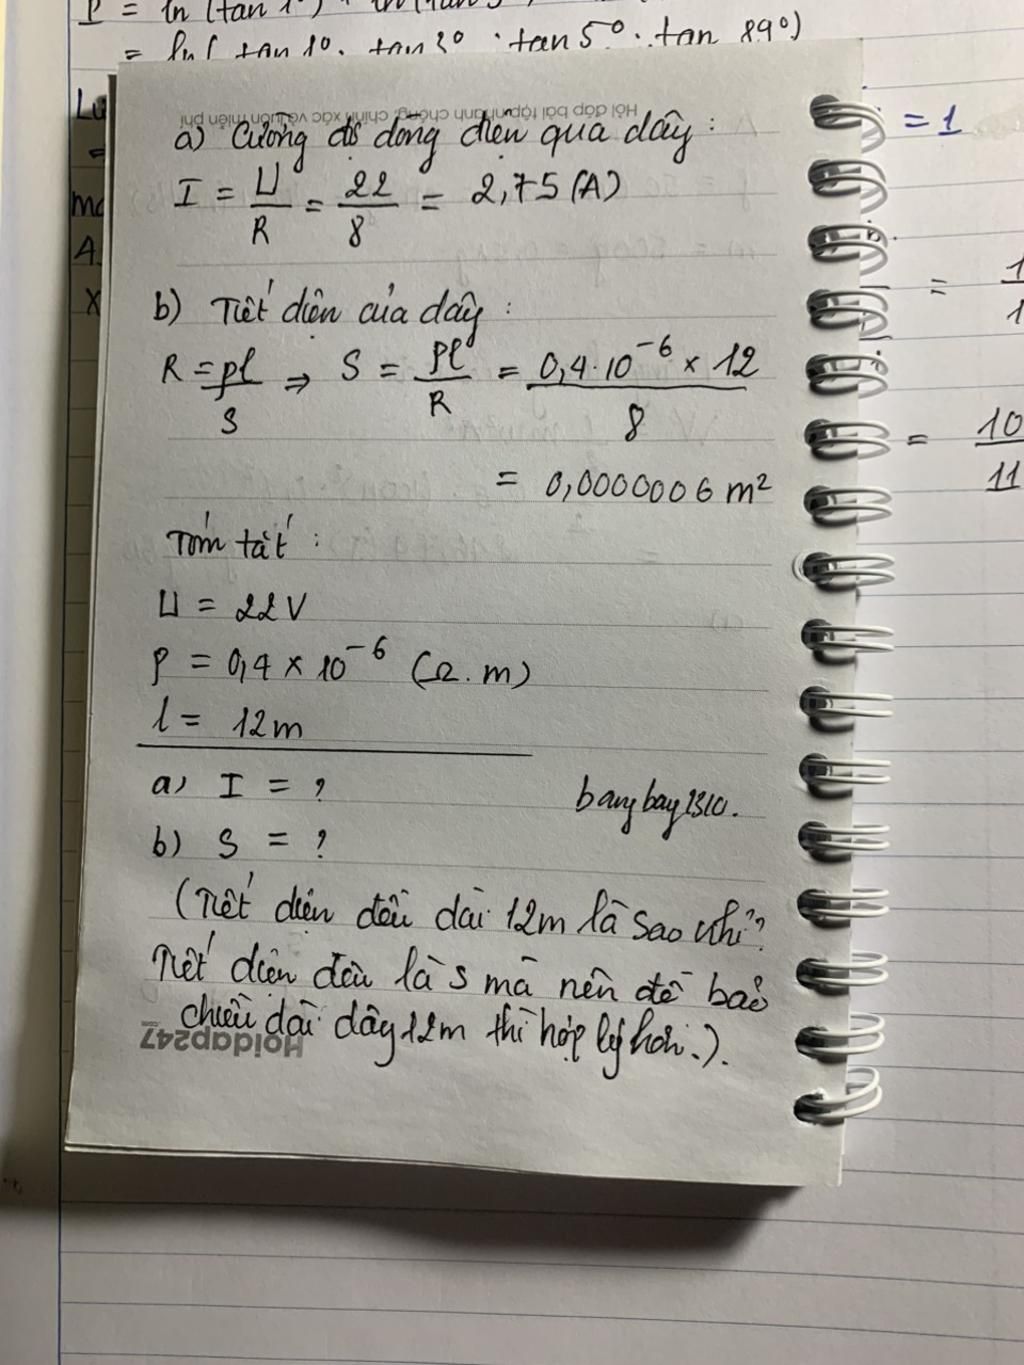 P = ln (tan 1°) + ln (tan 3°
= ln( tan 1°. tan 3° . tan 5° . tan 89°)
Hỏi đáp bài tập nhanh chóng, chính xác và luôn miễn phí
a) Cường độ dòng điện qua dây :
I = U/R = 22/8 = 2,75 (A)
b) Tiết diện của dây :
R = ρl/S ⇒ S = ρl/R = 0,4.10⁻⁶ × 12/8
= 0,0000006 m²
Tóm tắt :
U = 22V
ρ = 0,4 × 10⁻⁶ (Ω.m)
l = 12m
a) I = ?
b) S = ?
bangbay1310.
(Tiết diện đều dài 12m là sao nhỉ?
Tiết diện đều là S mà nên đề bảo
chiều dài dây 12m thì hợp lý hơn.).
Hoidap247
= 1
= 1
1
= 10/11